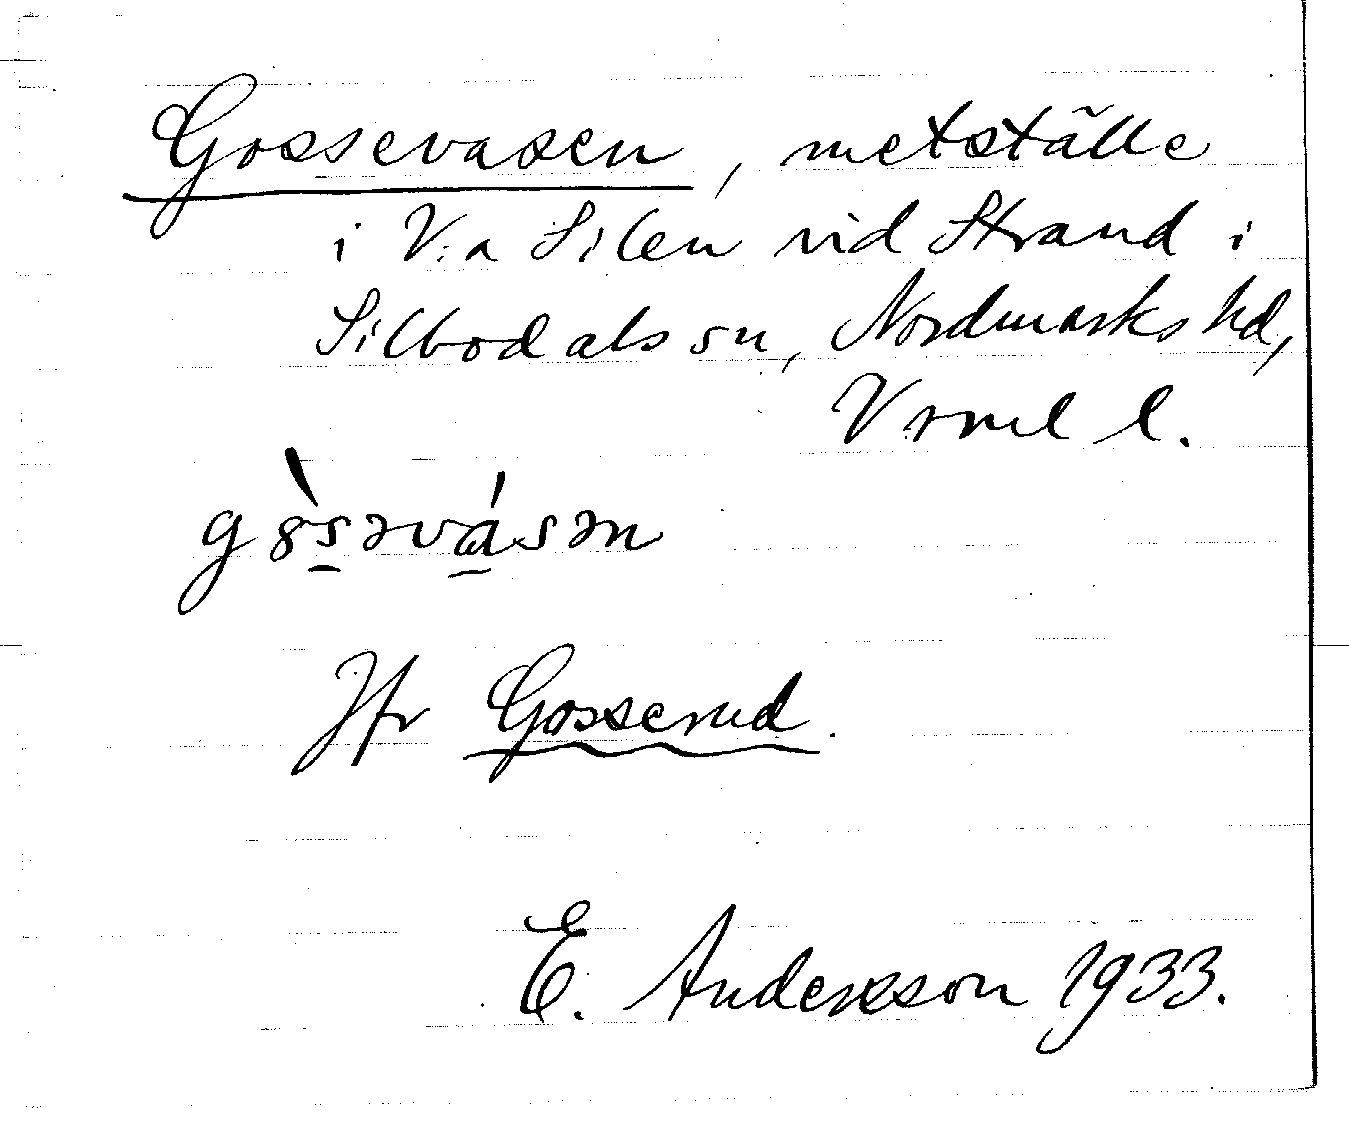 Gossevasen, metställe
i V:a Silen vid Strand i
Silbodals sn, Nordmarks hd,
Vrml l.
gȣ̀s̲əvá̲sən
Jfr Gosserud.
E. Andersson 1933.